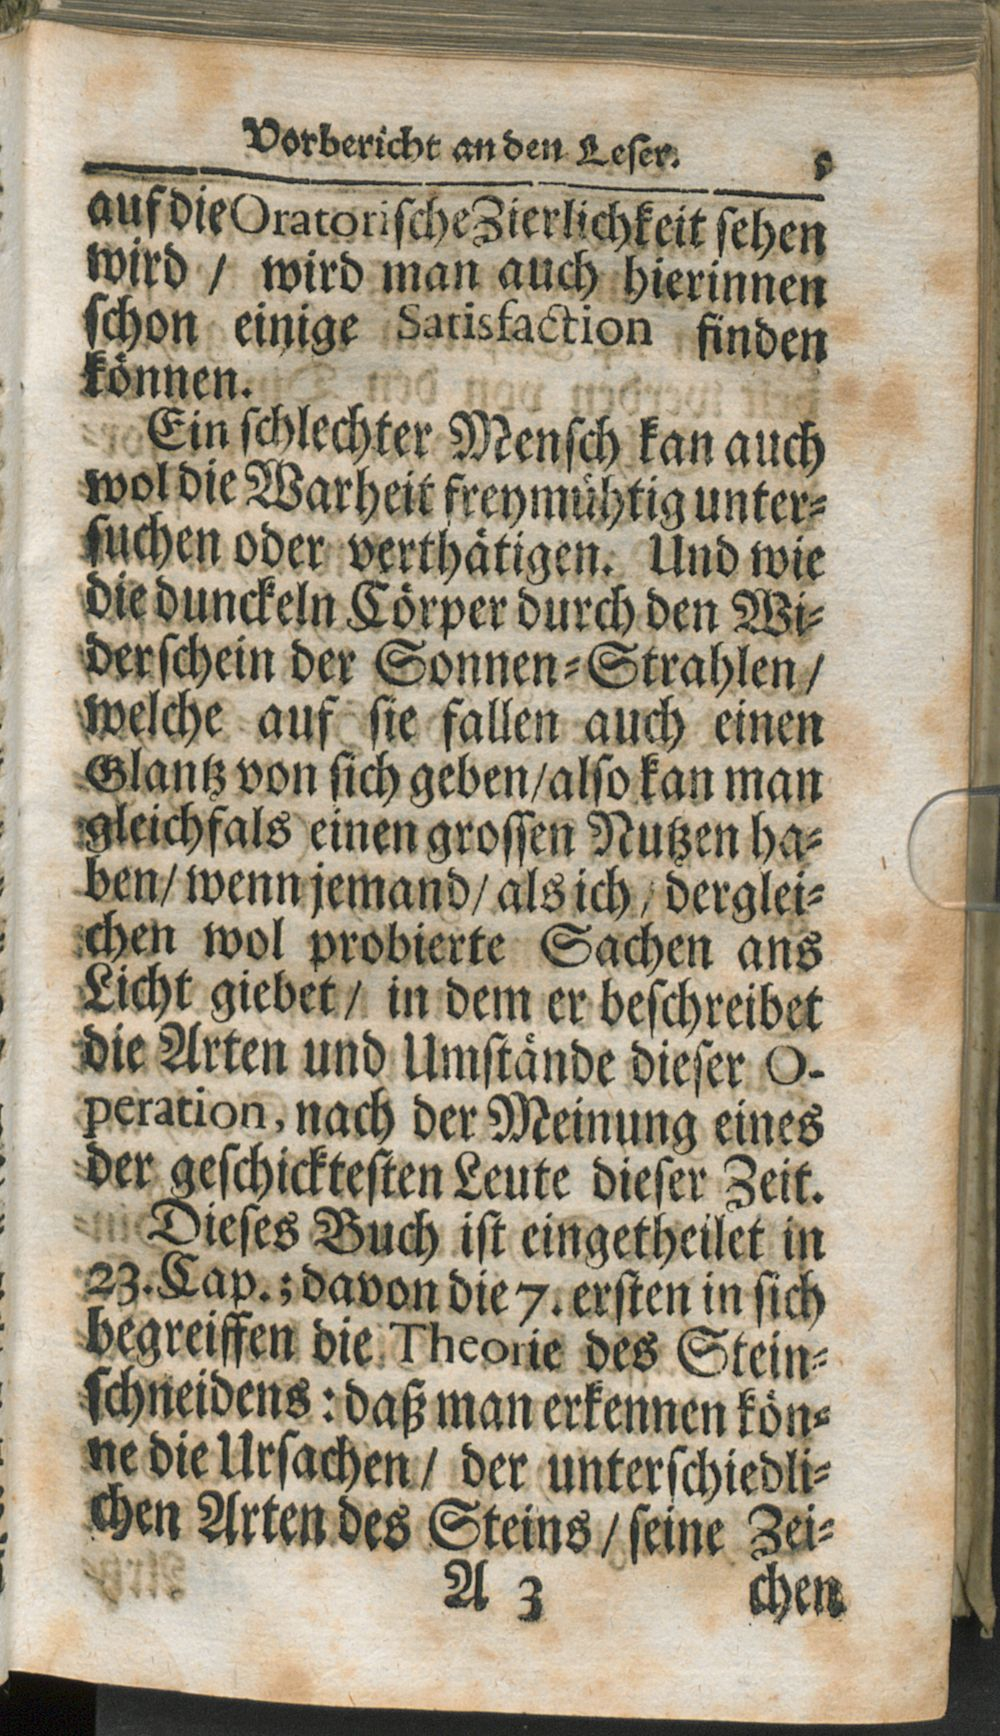 Vorbericht an den Leser. 5
auf die Oratorische Zierlichkeit sehen
wird / wird man auch hierinnen
schon einige Satisfaction finden
können.
Ein schlechter Mensch kan auch
wol die Warheit freymühtig unter-
suchen oder verthätigen. Und wie
die dunckeln Cörper durch den Wi-
derschein der Sonnen-Strahlen /
welche auf sie fallen auch einen
Glantz von sich geben / also kan man
gleichfals einen grossen Nutzen ha-
ben / wenn jemand / als ich / derglei-
chen wol probierte Sachen ans
Licht giebet / in dem er beschreibet
die Arten und Umstände dieser O-
peration, nach der Meinung eines
der geschicktesten Leute dieser Zeit.
Dieses Buch ist eingetheilet in
23. Cap. ; davon die 7. ersten in sich
begreiffen die Theorie des Stein-
schneidens : daß man erkennen kön-
ne die Ursachen / der unterschiedli-
chen Arten des Steins / seine Zei-
A 3 chen